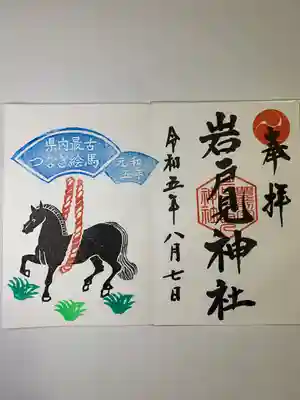 県内最古
つなぎ絵馬
元和
五年
奉拝
岩戸見神社
令和五年八月七日